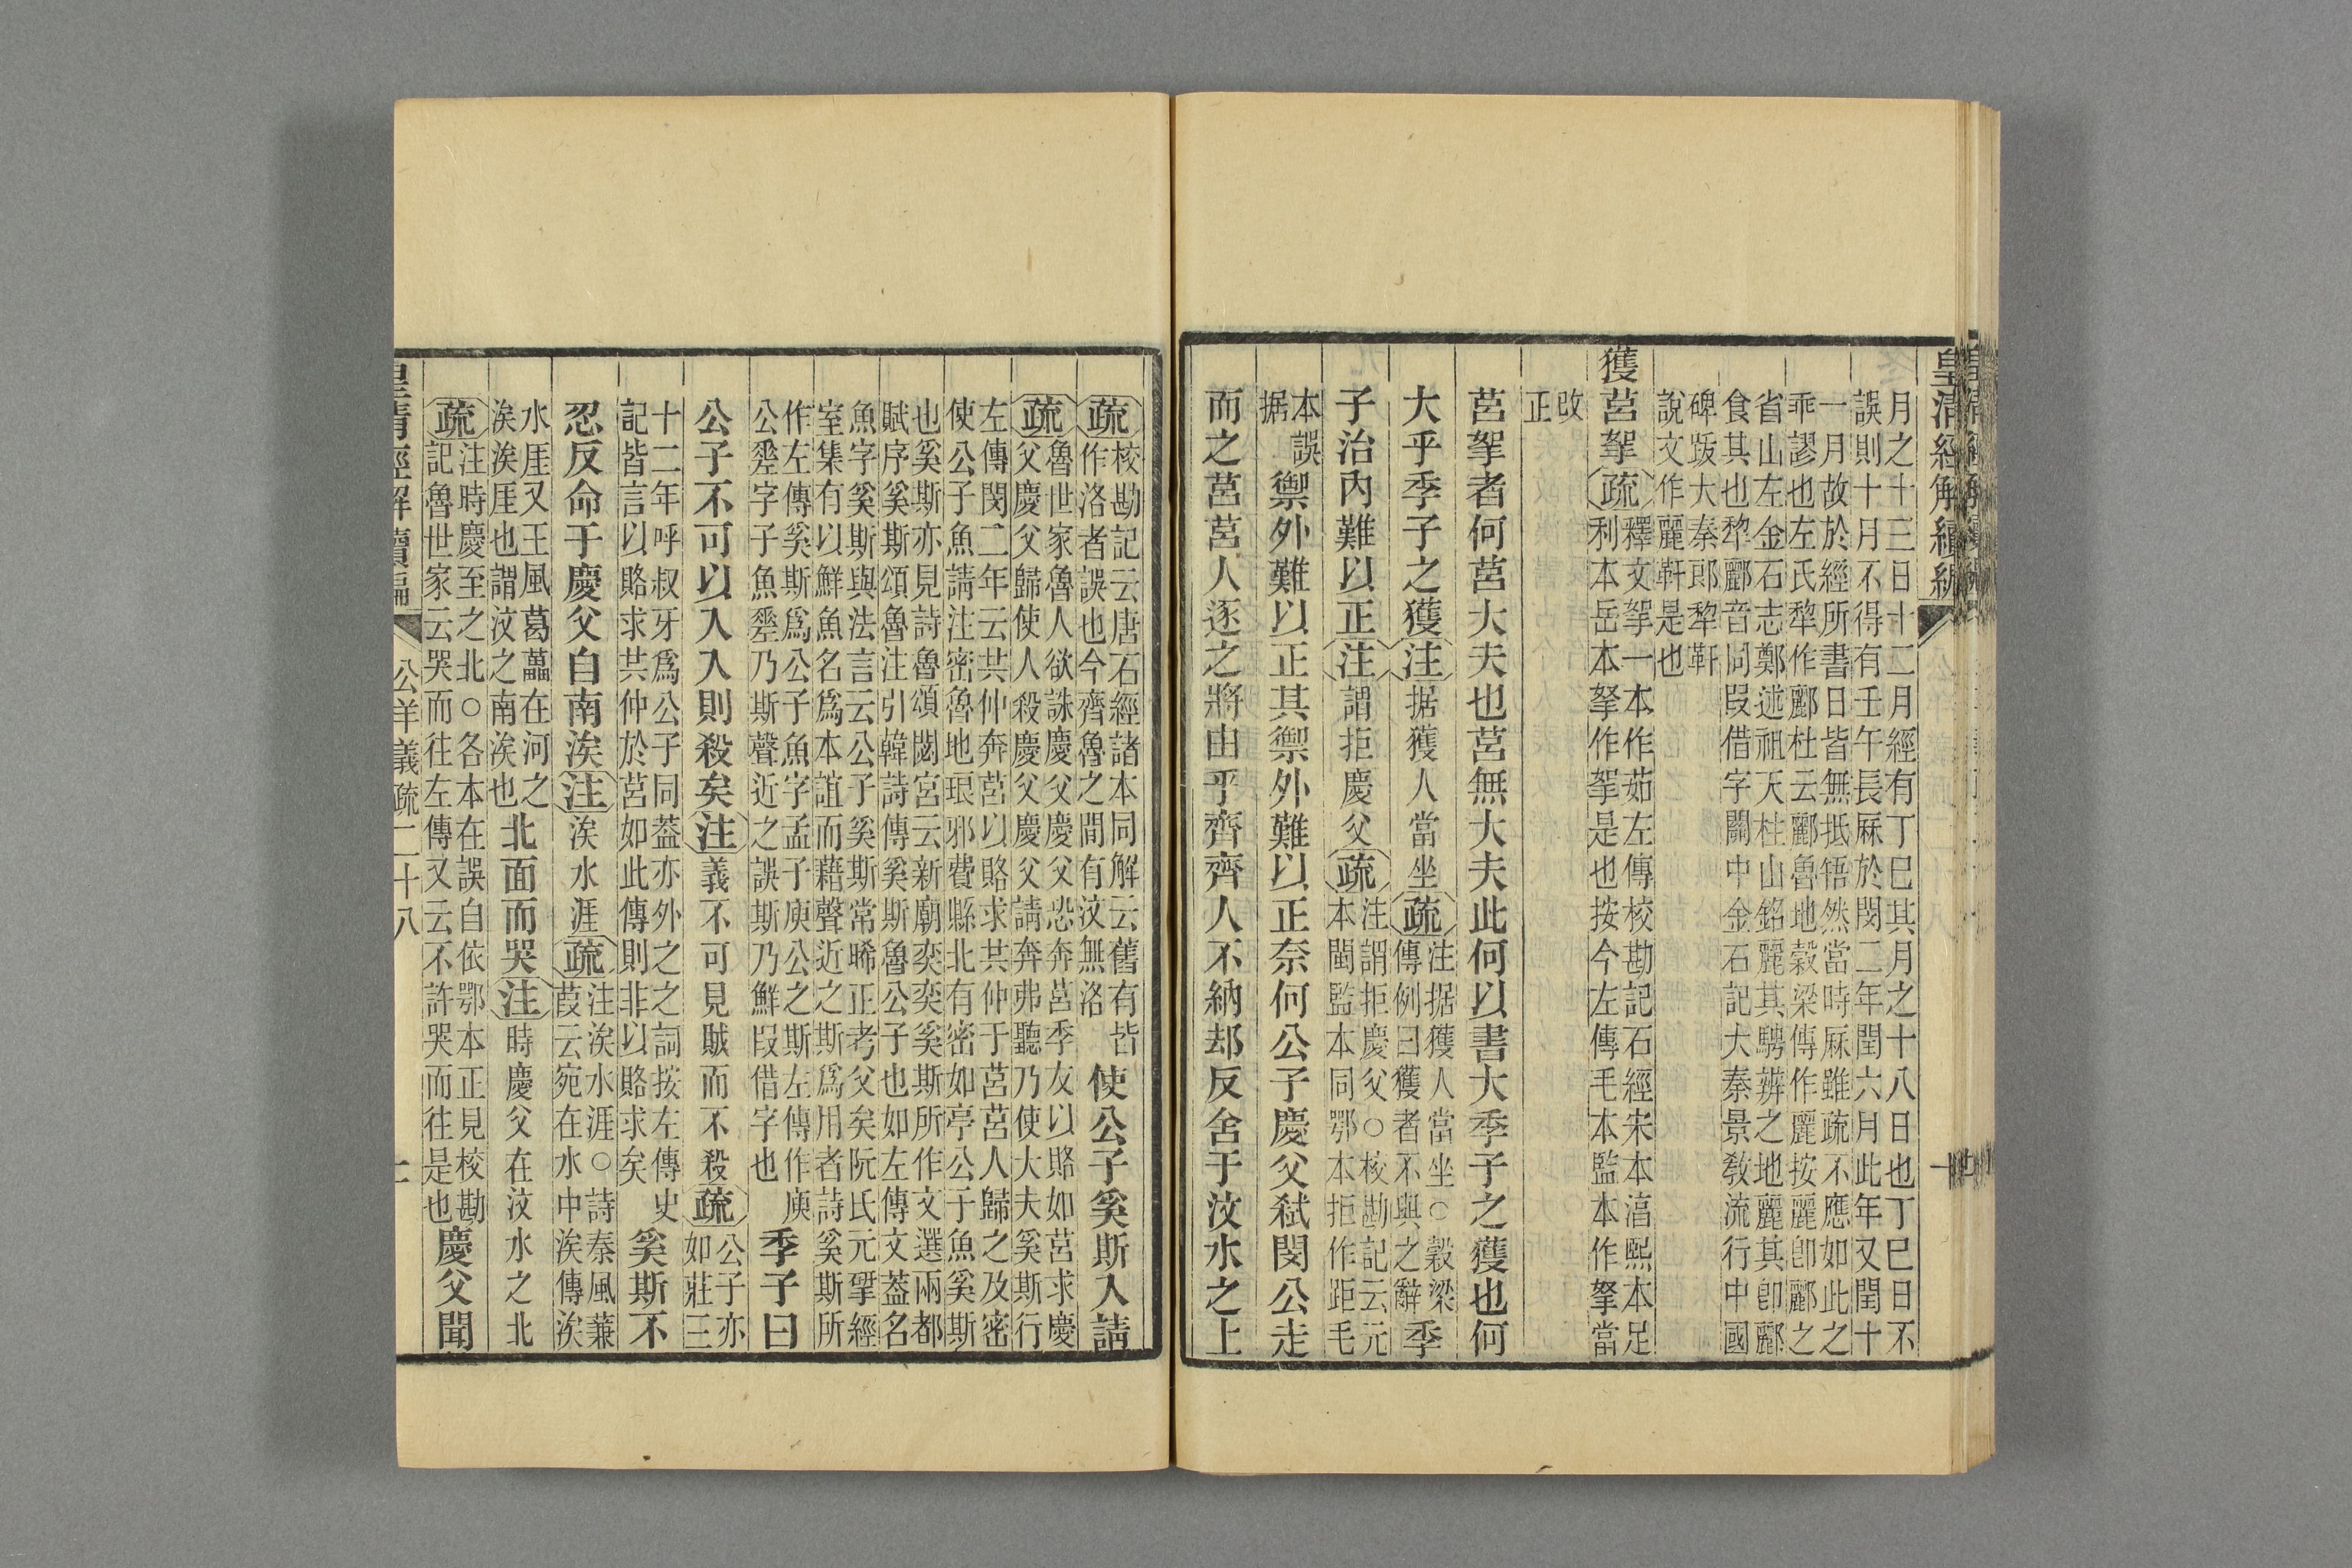 皇清經解續編
月之十三日十二月經有丁巳其月之十八日也丁巳日不
誤則十月不得有壬午長厤於閔二年閏六月此年又閏十
一月故於經所書日皆無抵牾然當時厤雖疏不應如此之
乖謬也左氏犂作酈杜云酈魯地穀梁傳作麗按麗卽酈之
省山左金石志鄭述祖天柱山銘麗其騁辨之地麗其卽酈
食其也犂酈音同叚借字關中金石記大秦景敎流行中國
碑䟦大秦郎犂靬
說文作麗靬是也
獲莒挐疏釋文挐一本作茹左傳校勘記石經宋本湻熙本足
利本岳本拏作挐是也按今左傳毛本監本作拏當
改
正
莒挐者何莒大夫也莒無大夫此何以書大季子之獲也何
大乎季子之獲注据獲人當坐疏注据獲人當坐○穀梁
傳例曰獲者不與之辭季
子治內難以正注謂拒慶父疏注謂拒慶父○校勘記云元
本閩監本同鄂本拒作距毛
本誤
据禦外難以正其禦外難以正奈何公子慶父弒閔公走
而之莒莒人逐之將由乎齊齊人不納却反舍于汶水之上
疏校勘記云唐石經諸本同解云舊有皆
作洛者誤也今齊魯之間有汶無洛使公子奚斯入請
疏魯世家魯人欲誅慶父慶父恐奔莒季友以賂如莒求慶
父慶父歸使人殺慶父慶父請奔弗聽乃使大夫奚斯行
左傳閔二年云共仲奔莒以賂求共仲于莒莒人歸之及密
使公子魚請注密魯地琅邪費縣北有密如亭公子魚奚斯
也奚斯亦見詩魯頌閟宮云新廟奕奕奚斯所作文選兩都
賦序奚斯頌魯注引韓詩傳奚斯魯公子也如左傳文葢名
魚字奚斯與法言云公子奚斯常晞正考父矣阮氏元揅經
室集有以鮮魚名爲本誼而藉聲近之斯爲用者詩奚斯所
作左傳奚斯爲公子魚字孟子庾公之斯左傳作庾
公㸚字子魚㸚乃斯聲近之誤斯乃鮮叚借字也季子曰
公子不可以入入則殺矣注義不可見賊而不殺疏公子亦
如莊三
十二年呼叔牙爲公子同葢亦外之之詞按左傳史
記皆言以賂求共仲於莒如此傳則非以賂求矣奚斯不
忍反命于慶父自南涘注涘水涯疏注涘水涯○詩秦風蒹
葭云宛在水中涘傳涘
水厓又王風葛藟在河之
涘涘厓也謂汶之南涘也北面而哭注時慶父在汶水之北
疏注時慶至之北○各本在誤自依鄂本正見校勘
記魯世家云哭而往左傳又云不許哭而往是也慶父聞
皇清經解續編
公羊義疏二十八